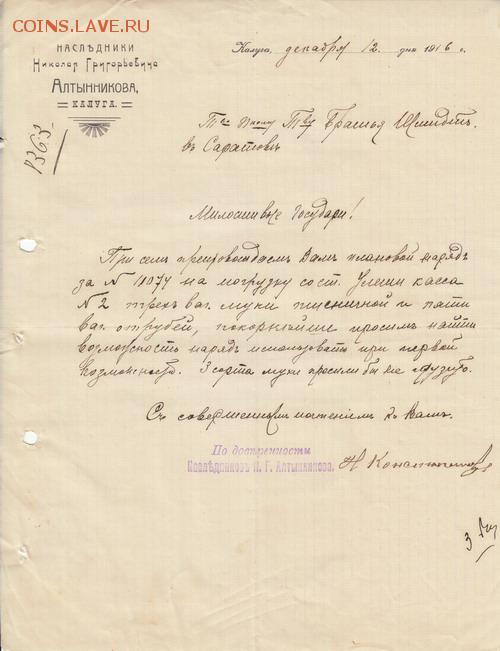 COINS.LAVE.RU
НАСЛѢДНИКИ
Николая Григорьевича
АЛТЫННИКОВА,
КАЛУГА.
1363
Калуга, декабря 12 дня 1916 г.
Т-ву Братья Шмидтъ
въ Саратовѣ
Милостивые Государи!
При семъ препровождаемъ Вамъ плановой нарядъ
за № 11074 на погрузку со ст. касса
№ 2 трехъ ваг. муки пшеничной и пяти
ваг. отрубей, покорнѣйше просимъ найти
возможность нарядъ использовать при первой
возможности. 3 сорта муки просили бы не грузить.
Съ совершеннымъ почтеніемъ къ Вамъ.
По довѣренности
Наслѣдниковъ Н. Г. Алтынникова.